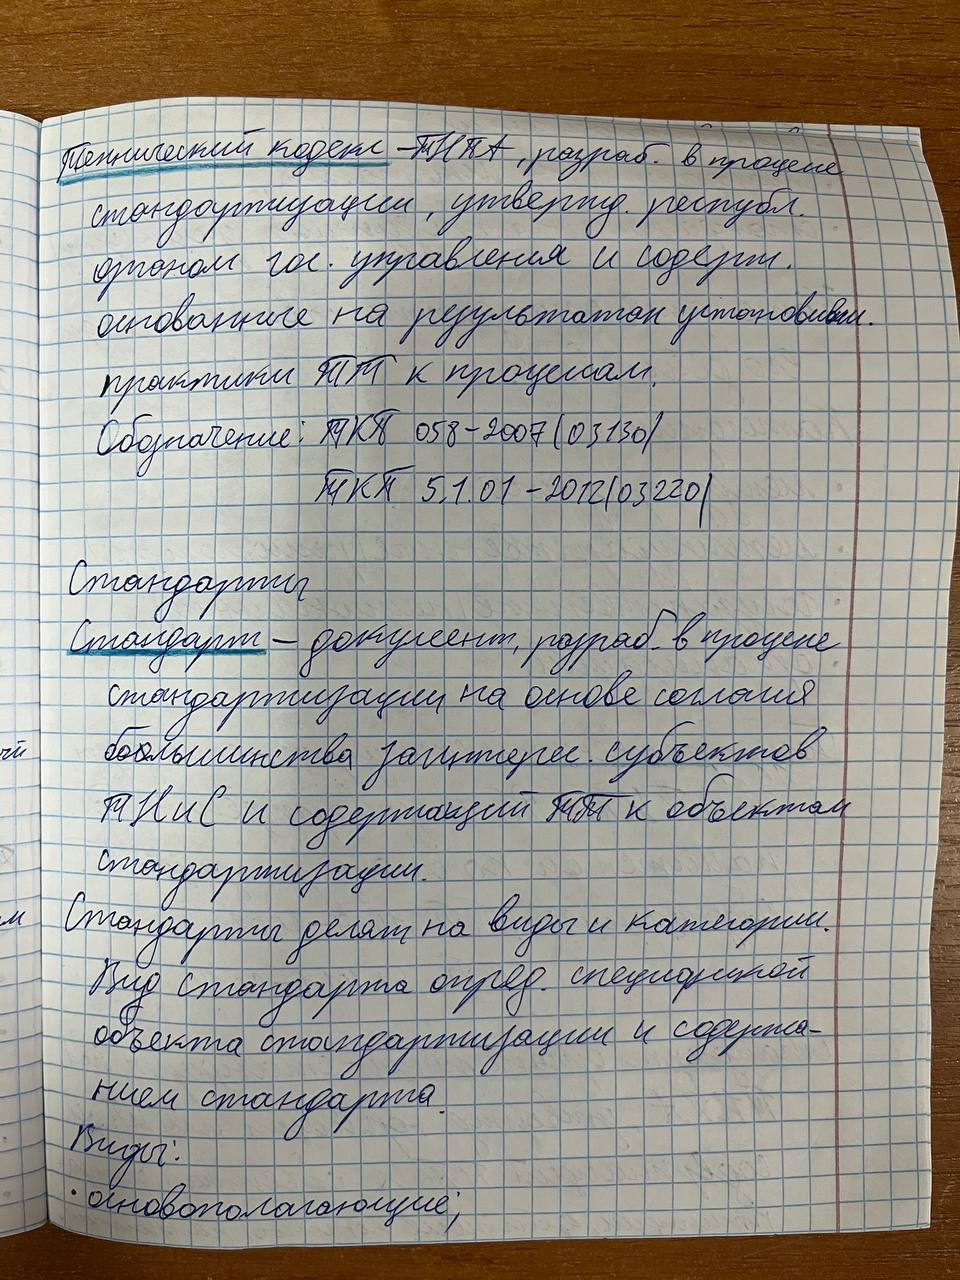 Технический кодекс - ТНПА, разраб. в процессе
стандартизации, утвержд. республ.
органом гос. управления и содерж.
основанные на результатах установивш.
практики ТТ к процессам.
Обозначение: ТКП 058-2007(03130)
ТКП 5.1.01-2012(03220)
Стандарты
Стандарт - документ, разраб. в процессе
стандартизации на основе согласия
большинства заинтерес. субъектов
ТНиС и содержащий ТТ к объектам
стандартизации.
Стандарты делят на виды и категории.
Вид стандарта опред. спецификой
объекта стандартизации и содержа-
нием стандарта.
Виды:
• основополагающие;